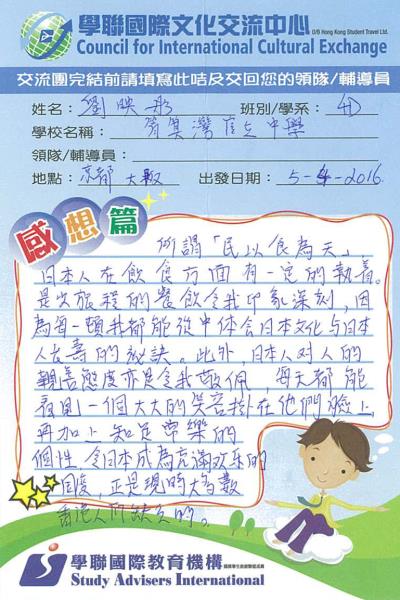 學聯國際文化交流中心
O/B Hong Kong Student Travel Ltd.
Council for International Cultural Exchange
交流團完結前請填寫此咭及交回您的領隊/輔導員
姓名：劉映彤 班別/學系：4D
學校名稱：筲箕灣官立中學
領隊/輔導員：
地點：京都 大阪 出發日期：5-4-2016
感想篇
所謂「民以食為天」，
日本人在飲食方面有一定的執着。
是次旅程的餐飲令我印象深刻，因
為每一頓我都能從中体会日本文化与日本
人友善的秘訣。此外，日本人对人的
親善態度亦是令我敬佩，每天都能
看見一個大大的笑容掛在他們臉上，
再加上知足常樂的
個性，令日本成為充滿欢乐的
国度，正是現時大多數
香港人所缺乏的。
學聯國際教育機構
Study Advisers International